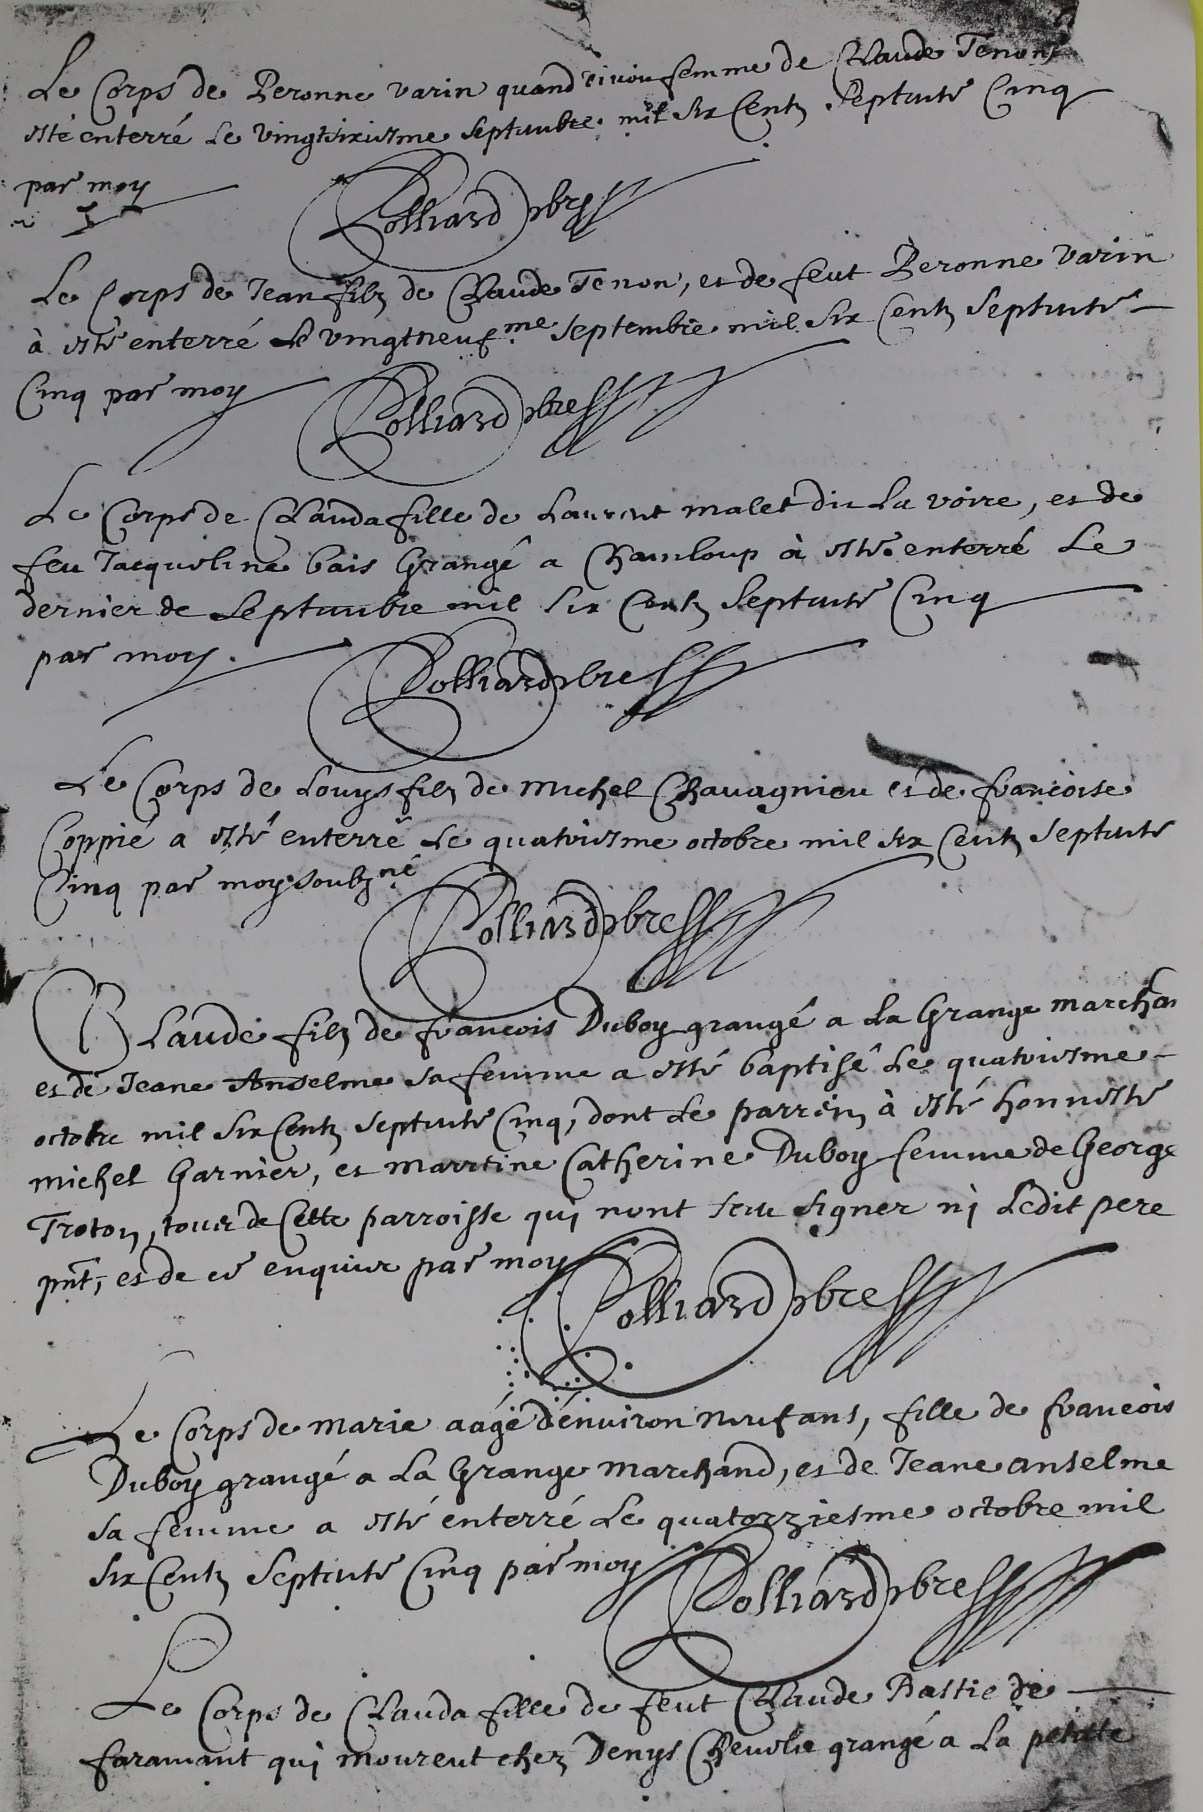 Le Corps de Peronne varin quand vivoit femme de Claude Tenon
esté enterré Le vingtsixiesme septembre mil six Centz septente Cinq
par moy
Rolliard pbre
Le Corps de Jean filz de Claude Tenon, et de feut Peronne varin
à esté enterré Le vingtneufme septembre mil six Centz septente
Cinq par moy Rolliard pbre
Le Corps de Clauda fille de Laurent malet dit La voire, et de
feu Jacqueline bais Grangé a Chamloup à esté enterré Le
dernier de septembre mil six Centz septente Cinq
par moy. Rolliard pbre
Le Corps de Louys filz de Michel Chavagnieu et de francoise
Coppié a esté enterré Le quatriesme octobre mil six Centz septente
Cinq par moy soubzné Rolliard pbre
Claude filz de francois Duboy grangé a La Grange marchan
et de Jeane Anselme sa femme a esté baptisé Le quatriesme
octobre mil six Centz septente Cinq, dont Le parrein à esté honneste
michel Garnier, et marreine Catherine Duboy femme de George
Troton, tous de Cette parroisse qui nont sceu signer ni Ledit pere
pnt, et de ce enquis par moy Rolliard pbre
Le Corps de marie aagé dénviron neuf ans, fille de francois
Duboy grangé a La Grange marchand, et de Jeane anselme
sa femme a esté enterré Le quatorziesme octobre mil
six Centz septente Cinq par moy Rolliard pbre
Le Corps de Clauda fille de feut Claude Bastie de
faramant qui mourent chez Denys grangé a La petitte